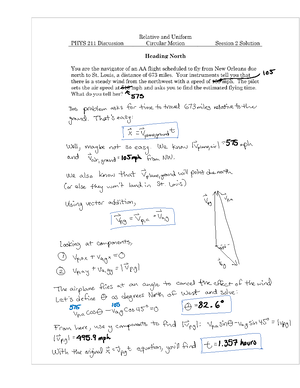 Relative and Uniform
PHYS 211 Discussion Circular Motion Session 2 Solution
Heading North
You are the navigator of an AA flight scheduled to fly from New Orleans due
north to St. Louis, a distance of 673 miles. Your instruments tell you that
there is a steady wind from the northwest with a speed of 105 mph. The pilot
sets the air speed at 575 mph and asks you to find the estimated flying time.
What do you tell her?
This problem asks for time to travel 673 miles relative to the
ground. That's easy:
x⃗ = v⃗plane,ground t
Well, maybe not so easy. We know |v⃗plane,air| = 575 mph
and v⃗air,ground = 105 mph from NW.
We also know that v⃗plane,ground will point due north
(or else they won't land in St. Louis)
Using vector addition,
v⃗pg = v⃗pa + v⃗ag
Looking at components,
① vpax + vagx = 0
② vpay + vagy = |v⃗pg|
The airplane flies at an angle to cancel the effect of the wind
Let's define θ as degrees North of West and solve:
575 105
vpa cosθ - vag cos45° = 0 θ = 82.6°
From here, use y components to find |v⃗pg|: vpa sinθ - vag sin45° = |vpg|
|v⃗pg| = 495.9 mph
With the original x⃗ = v⃗pg t equation, you'll find t = 1.357 hours